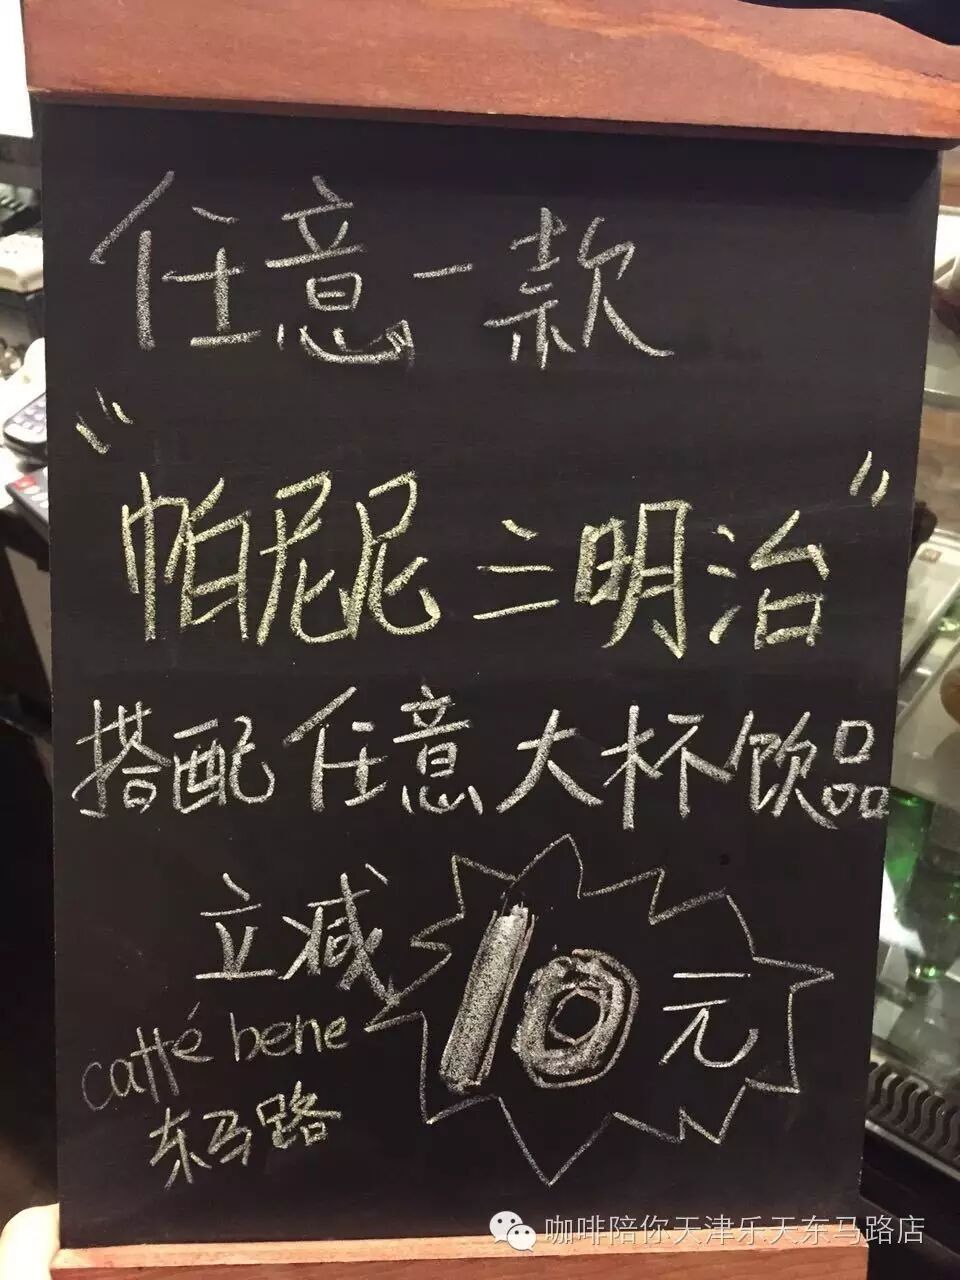 任意一款
“帕尼尼三明治”
搭配任意大杯饮品
立减10元
caffé bene
东马路
咖啡陪你天津乐天东马路店